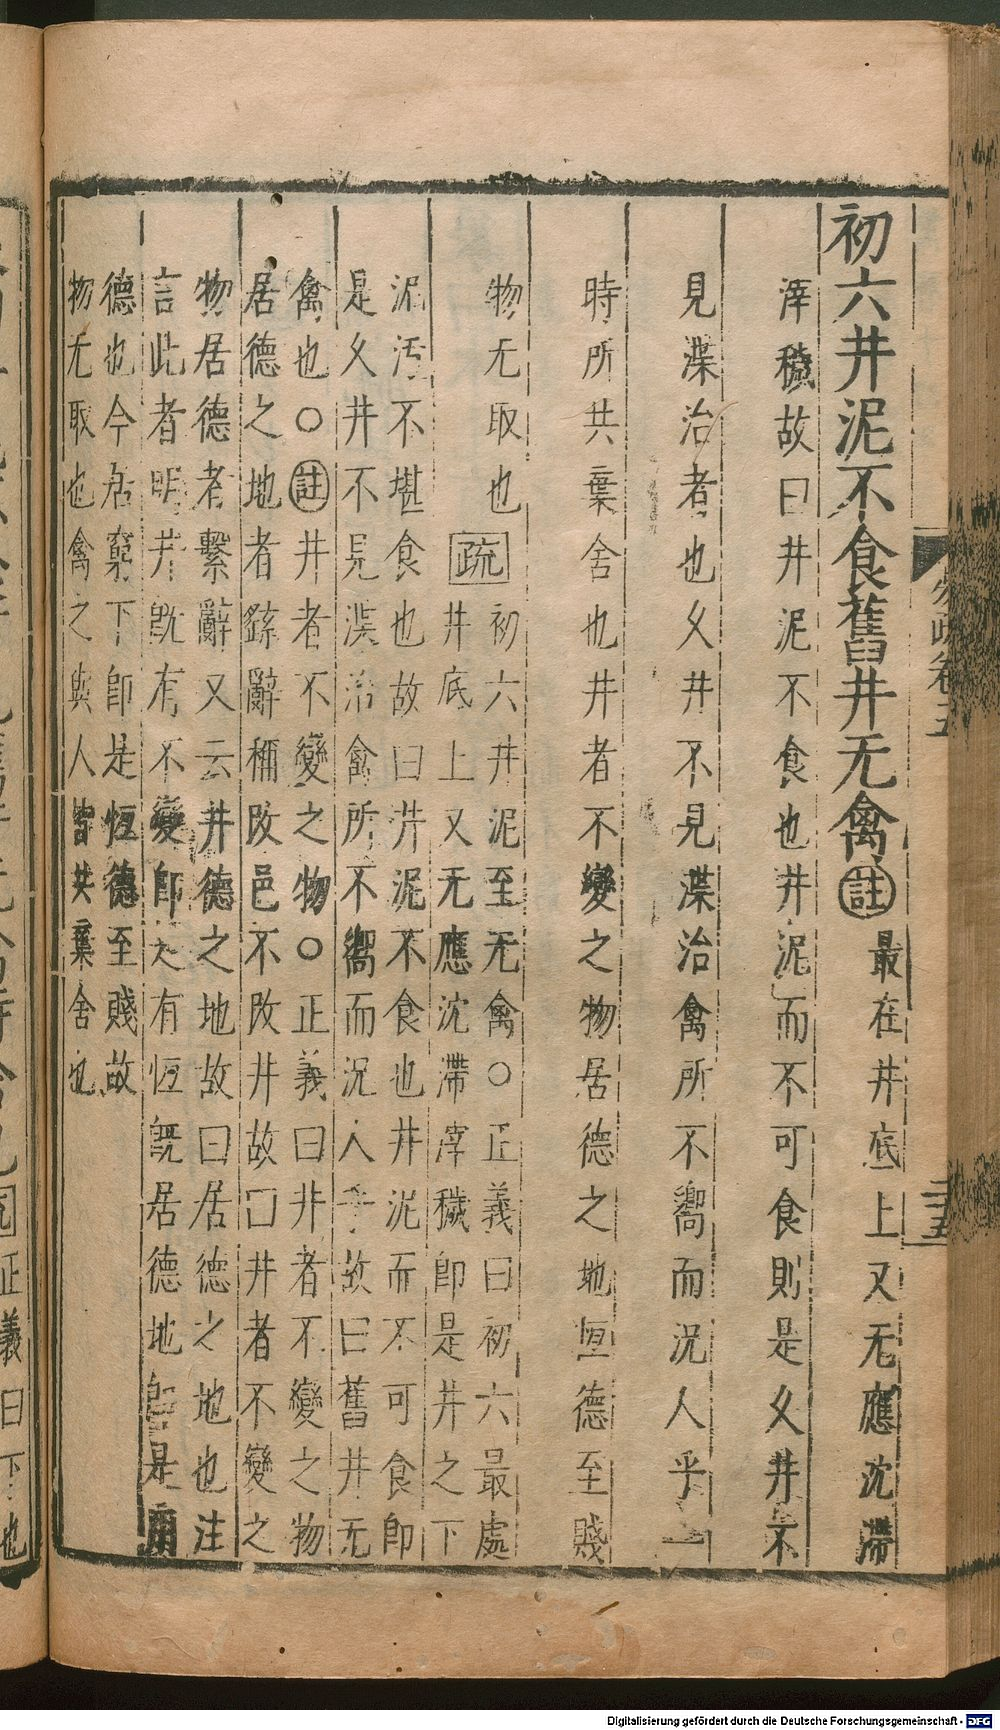 易疏卷五
二十五
初六井泥不食舊井无禽註最在井底上又无應沈滯
滓穢故曰井泥不食也井泥而不可食則是久井不
見渫治者也久井不見渫治禽所不嚮而況人乎一
時所共棄舍也井者不變之物居德之地恒德至賤
物无取也疏初六井泥至无禽○正義曰初六最處
井底上又无應沈滯滓穢即是井之下
泥污不堪食也故曰井泥不食也井泥而不可食即
是久井不見渫治禽所不嚮而況人乎故曰舊井无
禽也○註井者不變之物○正義曰井者不變之物
居德之地者繇辭稱改邑不改井故曰井者不變之
物居德者繫辭又云井德之地故曰居德之地也注
言此者明井既有不變即是有恒既居德地即是用
德也今居窮下即是恒德至賤故
物无取也禽之與人皆共棄舍也
Digitalisierung gefördert durch die Deutsche Forschungsgemeinschaft - DFG